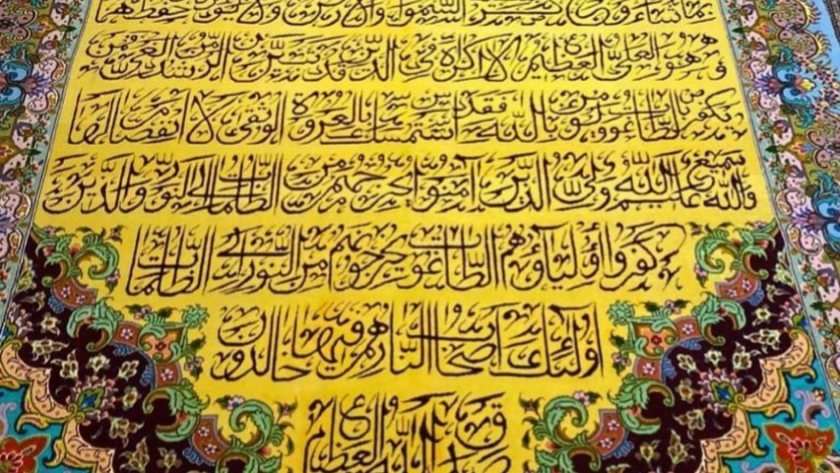 بما شاء وسع كرسيه السموات والأرض ولا يؤده حفظهما
وهو العلي العظيم لا إكراه في الدين قد تبين الرشد من الغي فمن
يكفر بالطاغوت ويؤمن بالله فقد استمسك بالعروة الوثقى لا انفصام لها
والله سميع عليم الله ولي الذين آمنوا يخرجهم من الظلمات إلى النور والذين
كفروا أولياؤهم الطاغوت يخرجونهم من النور إلى الظلمات
أولئك أصحاب النار هم فيها خالدون
صدق الله العلي العظيم